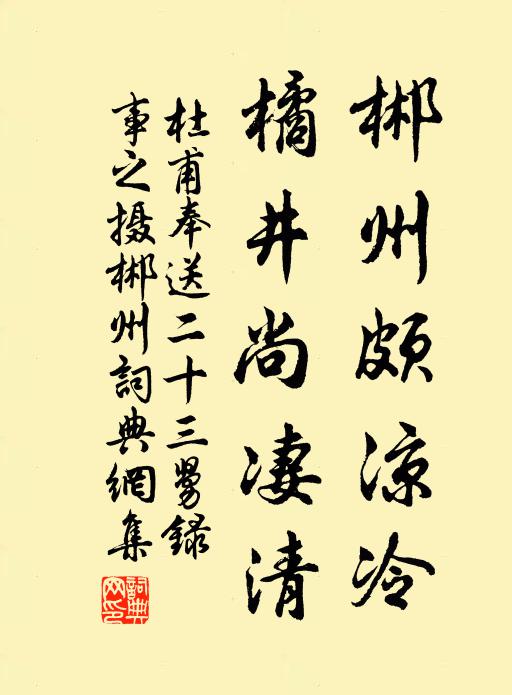 郴州頗凉冷
橘井尚凄清
杜甫奉送二十三舅録
事之摄郴州詞典網集
詞典